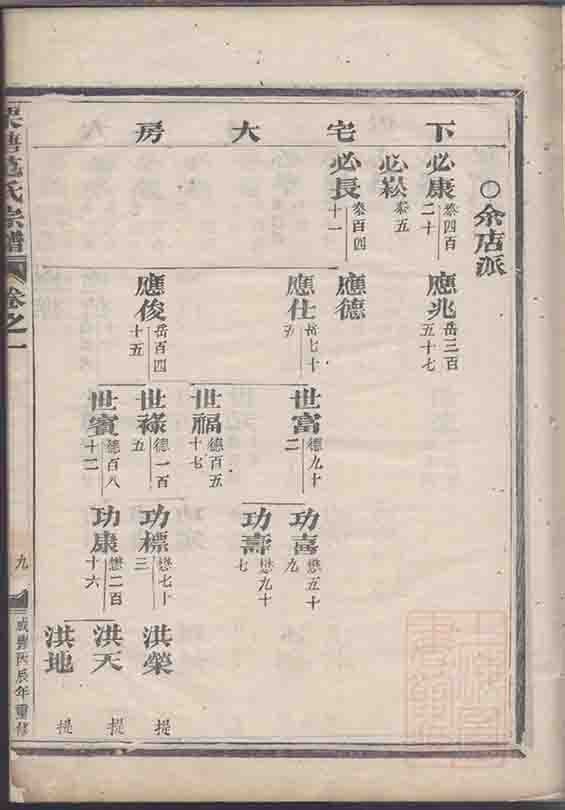 ○余店派
下宅大房
必康 叅四百二十
必崧 叅五
必長 叅百四十一
應兆 岳三百五十七
應德
應仕 岳七十五
應俊 岳百四十五
世富 德九十二
世福 德百五十七
世祿 德一百五
世賓 德百八十二
功喜 懋五十九
功壽 懋九十七
功標 懋七十三
功康 懋二百十六
洪榮 提
洪天 提
洪地 提
范氏宗譜
卷之一
九
咸豐丙辰年重修